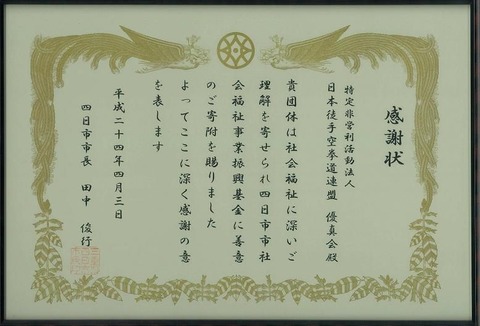 感謝状
特定非営利活動法人
日本徒手空拳道連盟 優真会殿
貴団体は社会福祉に深いご
理解を寄せられ四日市市社
会福祉事業振興基金に善意
のご寄附を賜りました
よってここに深く感謝の意
を表します
平成二十四年四月三日
四日市市長 田中 俊行